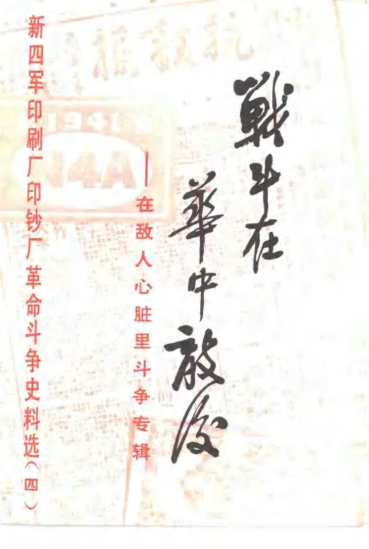 新四军印刷厂印钞厂革命斗争史料选(四)
戰斗在
華中敌后
——在敌人心脏里斗争专辑